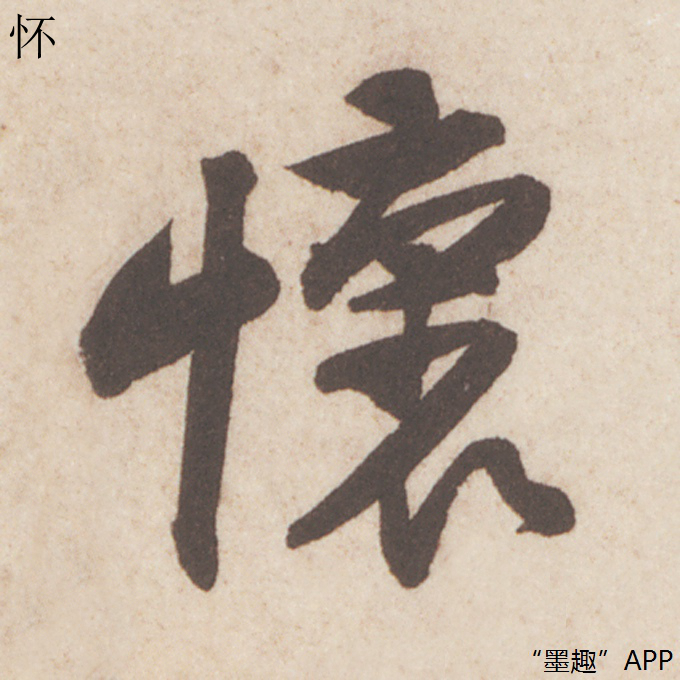 怀
懷
“墨趣”APP